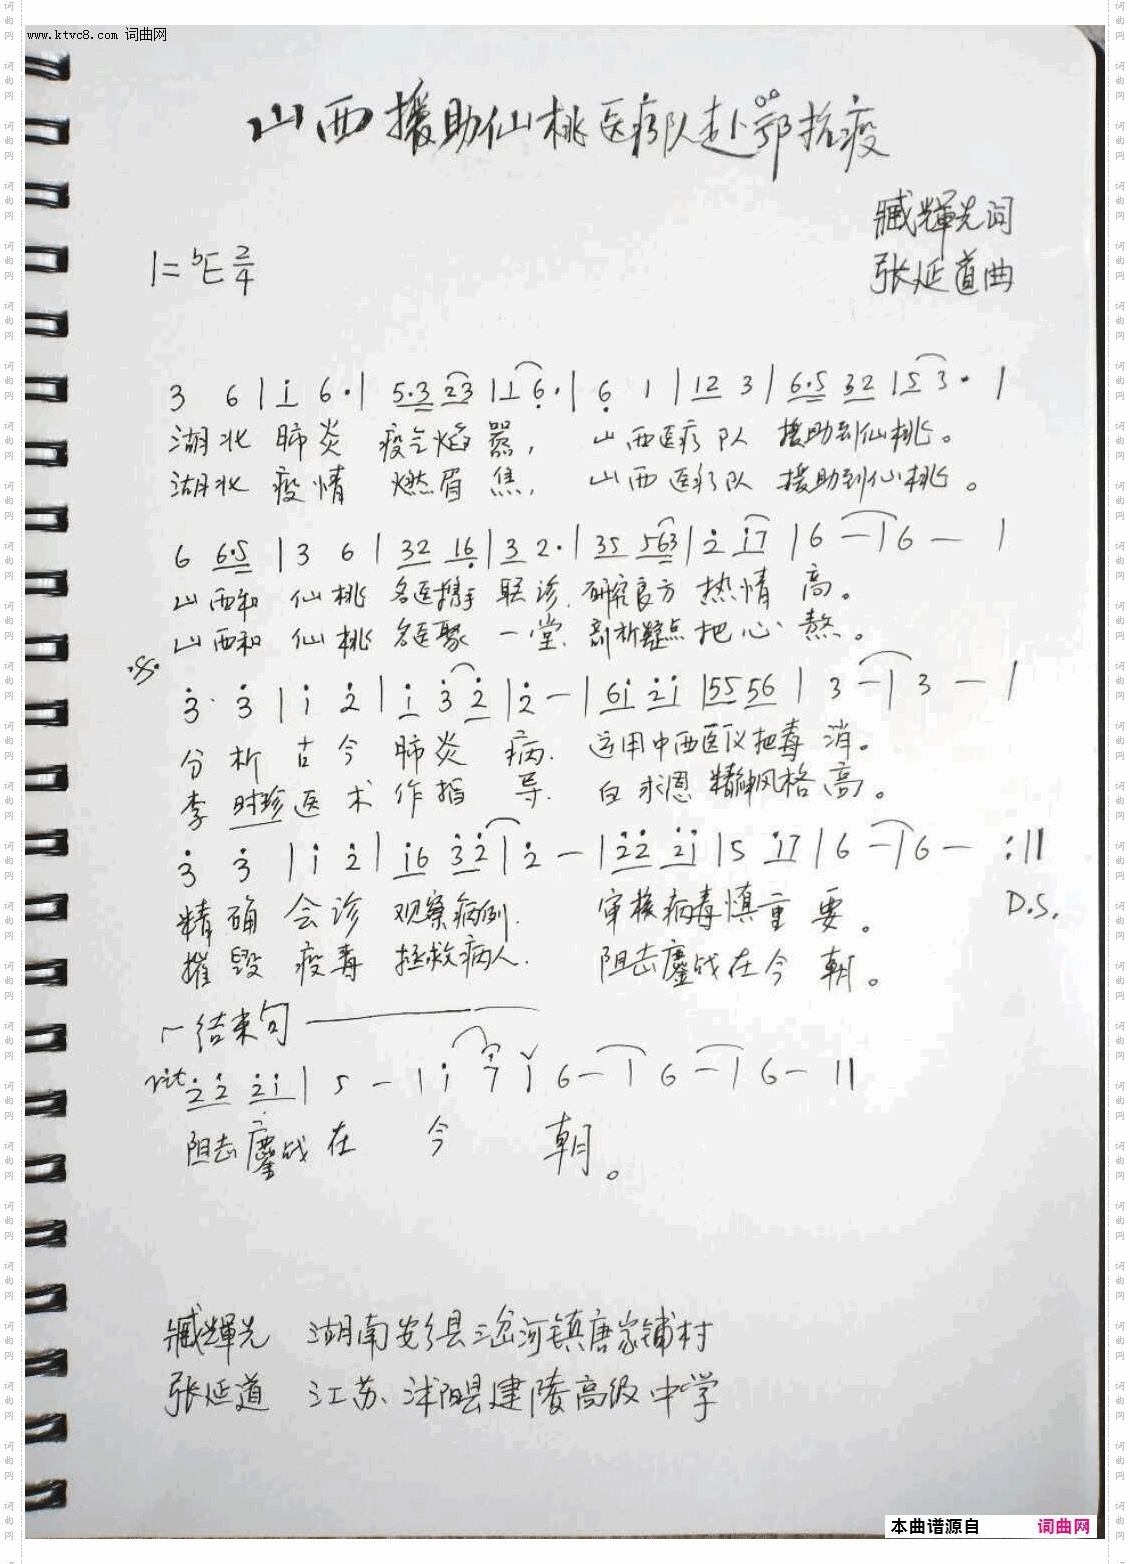 www.ktvc8.com 词曲网
山西援助仙桃医疗队赴鄂抗疫
臧輝先词
1=ᵇE 2/4
张延道曲
3 6 | i 6· | 5·3 23 | 1 6· | 6 1 | 12 3 | 6·5 32 | 5 3· |
湖北 肺炎 疫气焰嚣, 山西医疗队 援助到仙桃。
湖北 疫情 燃眉焦, 山西医疗队 援助到仙桃。
6 6·5 | 3 6 | 32 16 | 3 2· | 35 563 | 2 i7 | 6 — | 6 — |
山西和 仙桃 名医携手 联诊, 研究良方 热情 高。
山西和 仙桃 名医聚 一堂, 剖析疑点 把心 熬。
3· 3 | i 2 | i 3 2 | 2 — | 6i 2i | 55 56 | 3 — | 3 — |
分析 古今 肺炎 病, 运用中西医仪把毒 消。
李时珍医术作指 导, 白求恩精神风格高。
3 3 | i 2 | i6 32 | 2 — | 22 2i | 5 i7 | 6 — | 6 — :||
精确 会诊 观察病例, 审核病毒慎重 要。
D.S.
摧毁 疫毒 拯救病人, 阻击鏖战在今 朝。
结束句
rit 22 2i | 5 — | i 7 | 6 — | 6 — | 6 — ||
阻击鏖战 在 今 朝。
臧輝先 湖南安乡县三岔河镇唐家铺村
张延道 江苏、沭阳县建陵高级中学
本曲谱源自 词曲网